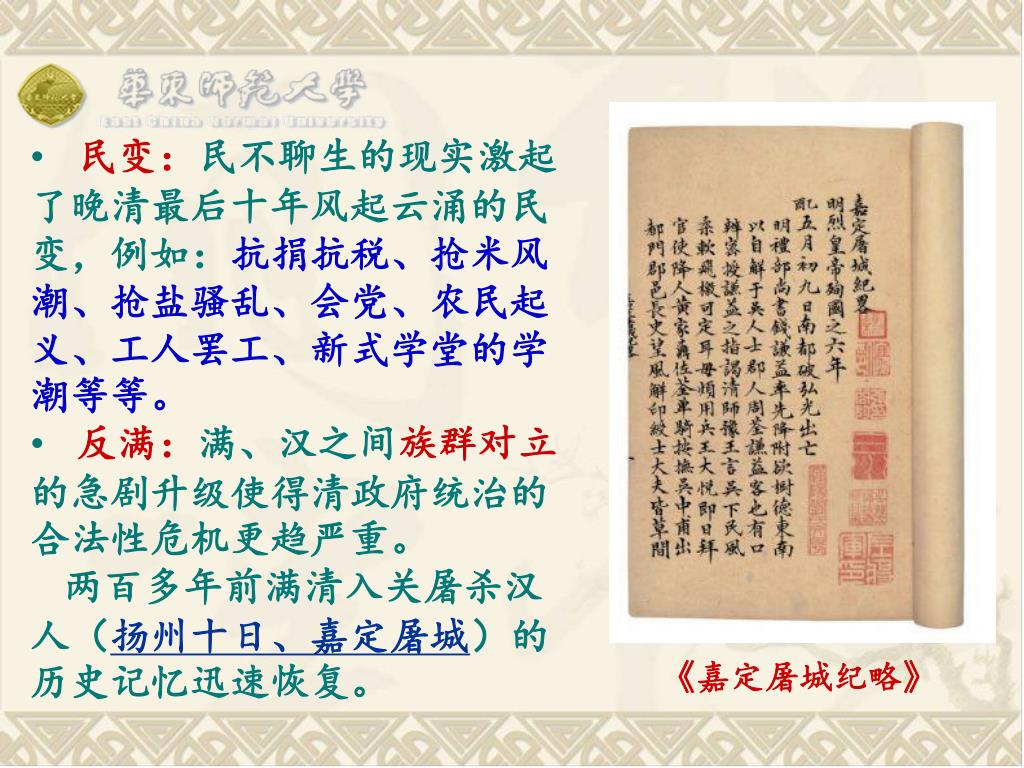 華東師範大學
East China Normal University
• 民变：民不聊生的现实激起
了晚清最后十年风起云涌的民
变，例如：抗捐抗税、抢米风
潮、抢盐骚乱、会党、农民起
义、工人罢工、新式学堂的学
潮等等。
• 反满：满、汉之间族群对立
的急剧升级使得清政府统治的
合法性危机更趋严重。
两百多年前满清入关屠杀汉
人（扬州十日、嘉定屠城）的
历史记忆迅速恢复。
嘉定屠城紀畧
明烈皇帝殉國之六年
五月初九日南都破弘光出亡
明禮部尚書錢謙益率先降附欲樹德東南
以自解于吳人士郡人周荃謙益客也有口
辨密授謙益之指謁清師豫王言吳下民風
柔軟飛檄可定耳毋煩用兵王大悅即日拜
官使降人黃家鼒佐荃單騎按撫吳中甫出
都門郡邑長吏望風解印綬士大夫皆草間
《嘉定屠城纪略》